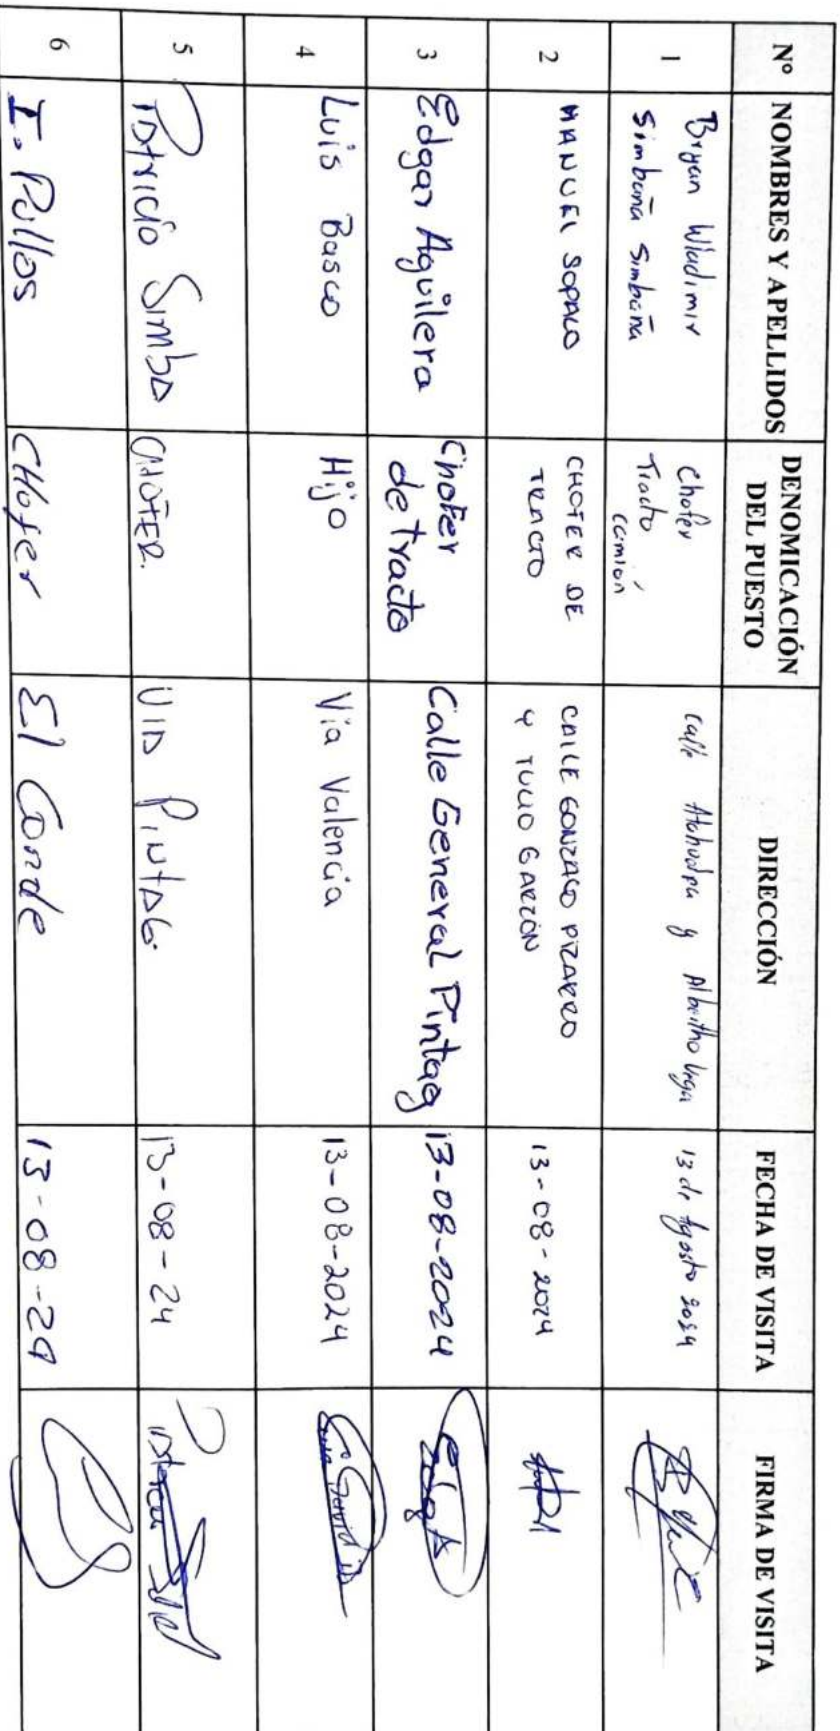 Nº NOMBRES Y APELLIDOS DENOMICACIÓN DEL PUESTO DIRECCIÓN FECHA DE VISITA FIRMA DE VISITA
1 Bryan Wladimir Simbaña Simbaña Chofer Tracto camión calle Atahualpa y 13 de Agosto 2024
2 MANUEL SOPALO CHOFER DE TRACTO CALLE GONZALO PIZARRO Y TULIO GARZÓN 13-08-2024
3 Edgar Aguilera Chofer de tracto Calle General Pintag 13-08-2024
4 Luis Basco Hijo Vía Valencia 13-08-2024
5 Patricio Simba CHOFER. VIA PINTAG. 13-08-24
6 I. Pallos CHofer El Conde 13-08-24